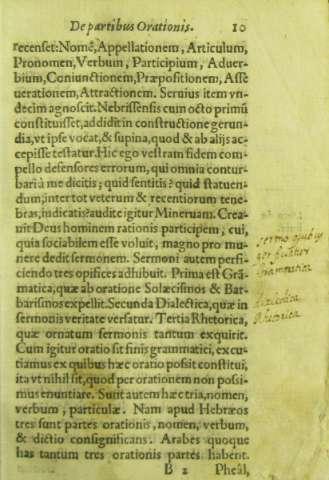 De partibus Orationis. 10
recenset: Nomẽ, Appellationem, Articulum,
Pronomen, Verbum, Participium, Aduer-
bium, Coniunctionem, Præpositionem, Asse
uerationem, Attractionem. Seruius item vn-
decim agnoscit. Nebrissensis cum octo primũ
constituisset, addidit in constructione gerun-
dia, vt ipse vocat, & supina, quod & ab alijs ac-
cepisse testatur. Hic ego vestram fidem com-
pello defensores errorum, qui omnia contur-
bari à me dicitis; quid sentitis? quid statuen-
dum, inter tot veterum & recentiorum tene-
bras, indicatis? audite igitur Mineruam. Crea-
uit Deus hominem rationis participem; cui,
quia sociabilem esse voluit; magno pro mu-
nere dedit sermonem. Sermoni autem perfi-
ciendo tres opifices adhibuit. Prima est Grã-
matica, quæ ab oratione Solæcismos & Bar-
barismos expellit. Secunda Dialectica, quæ in
sermonis veritate versatur. Tertia Rhetorica,
quæ ornatum sermonis tantum exquirit.
Cum igitur oratio sit finis grammatici, excu-
tiamus ex quibus hæc oratio possit constitui,
ita vt nihil sit, quod per orationem non possi-
mus enuntiare. Sunt autem hæc tria, nomen,
verbum, particulæ. Nam apud Hebræos
tres sunt partes orationis, nomen, verbum,
& dictio consignificans. Arabes quoque
has tantum tres orationis partes habent.
B 2 Pheál,
sermo
grammatica
dialectica
Rhetorica